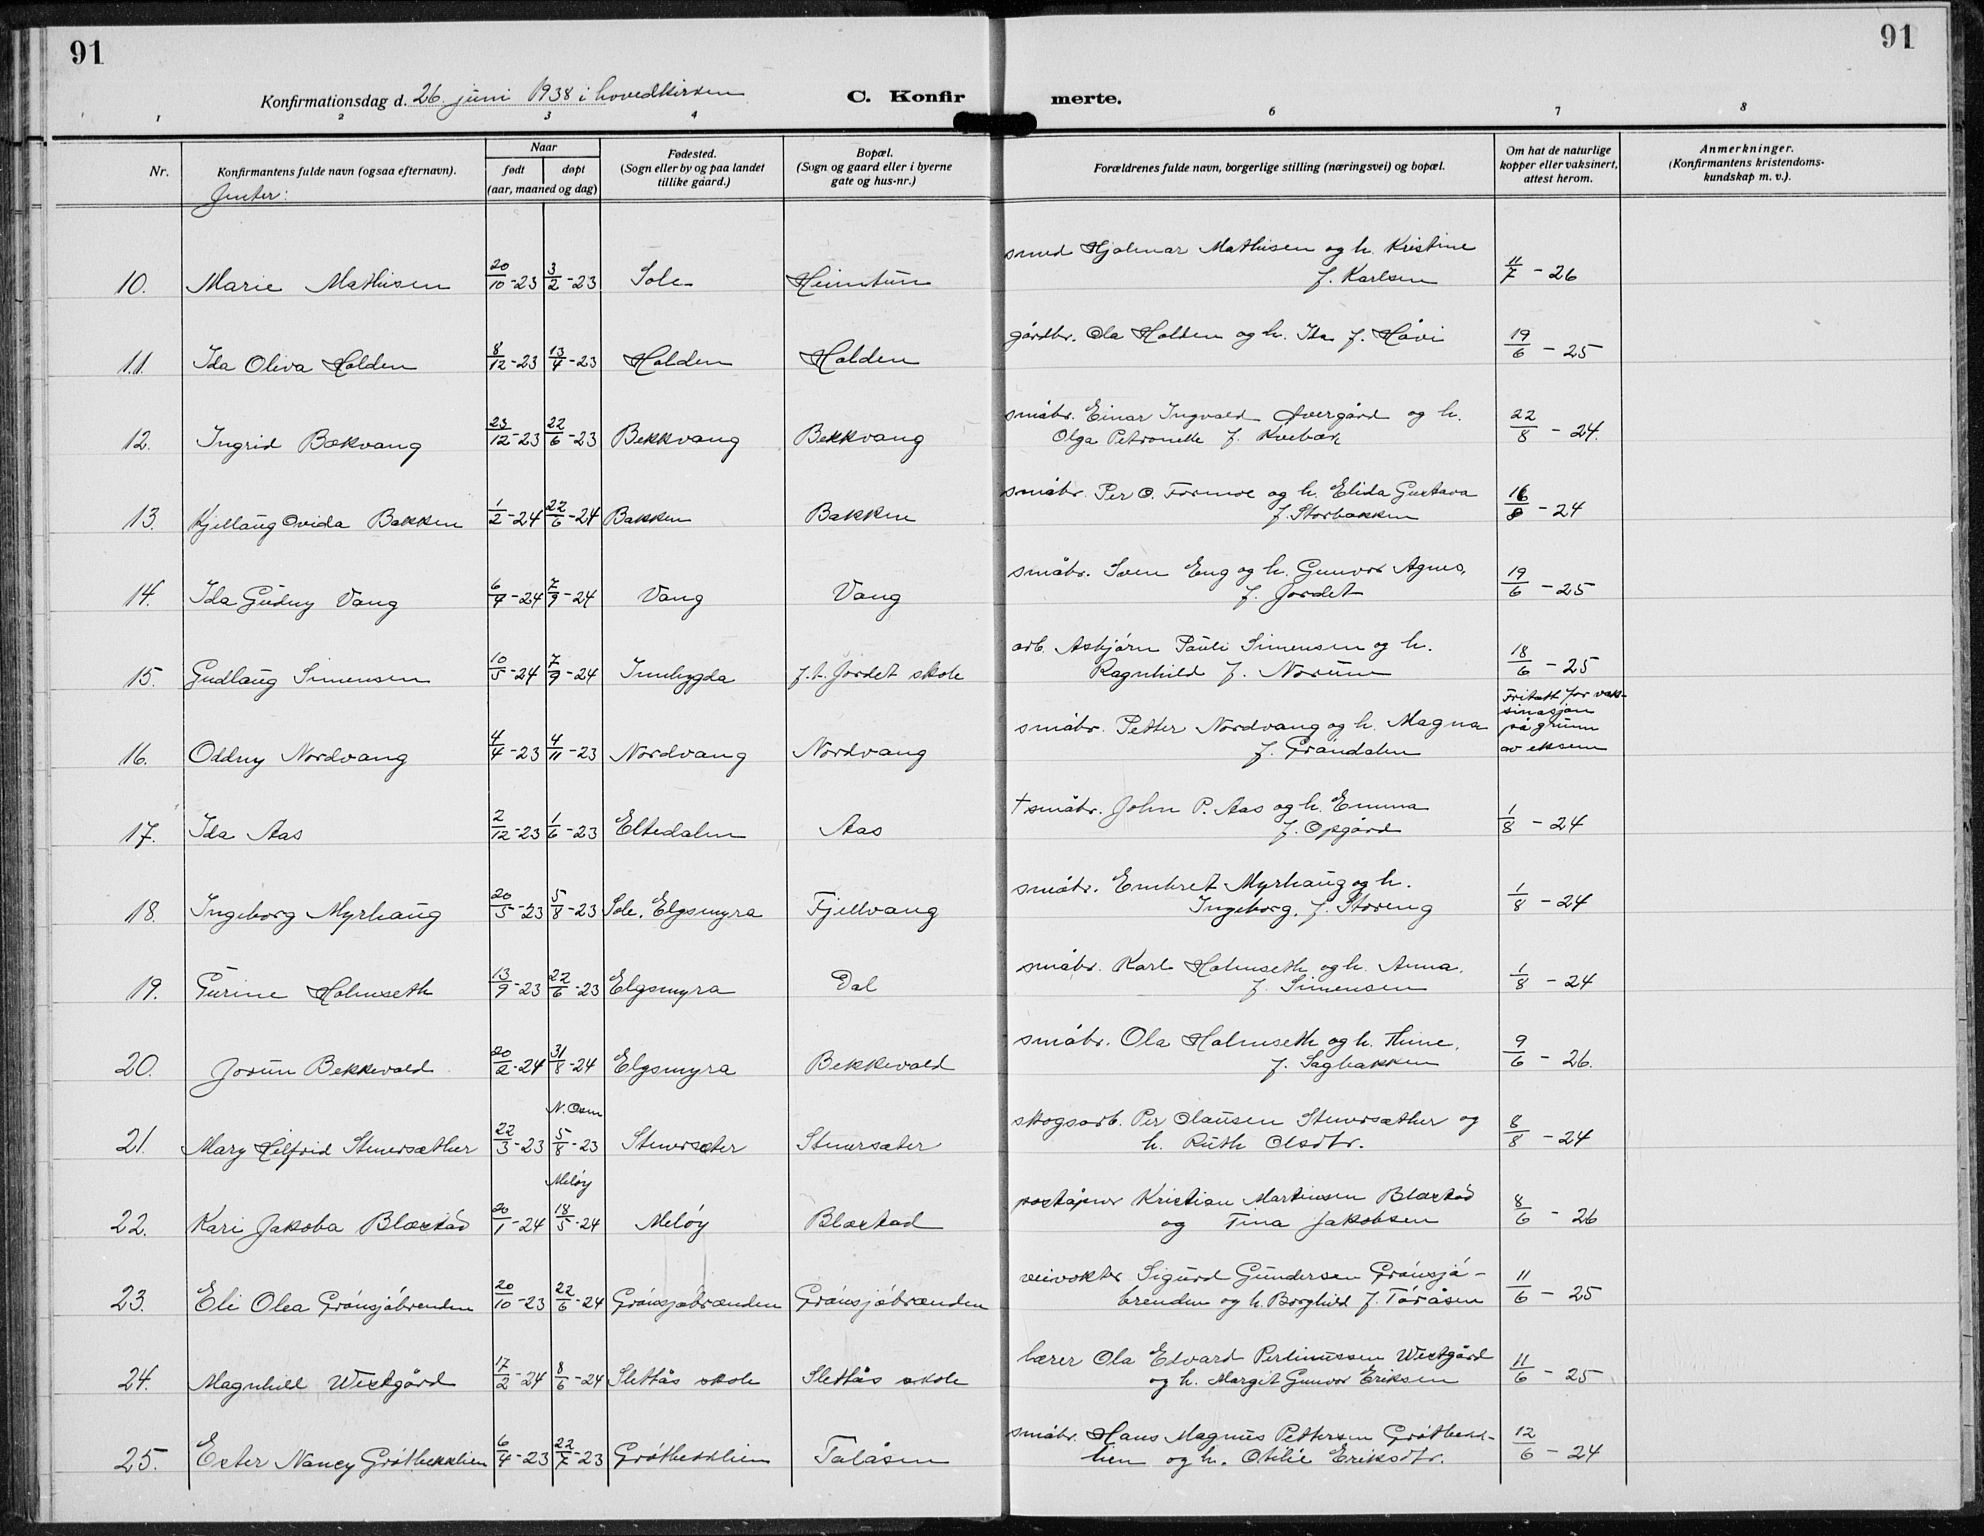 91
91
Konfirmationsdag d. 26. juni 1938 i hovedkirken
C. Konfir
merte.
1 2 3 4 6 7 8
Nr. Konfirmantens fulde navn (ogsaa efternavn). Naar født døpt (aar, maaned og dag) Fødested. (Sogn eller by og paa landet tillike gaard.) Bopæl. (Sogn og gaard eller i byerne gate og hus-nr.) Forældrenes fulde navn, borgerlige stilling (næringsvei) og bopæl. Om hat de naturlige kopper eller vaksinert, attest herom. Anmerkninger. (Konfirmantens kristendoms-kundskap m. v.).
Jenter:
smed Hjalmar Mathisen og h. Kristine
10. Marie Mathisen 20/10-23 3/2-23 Sole Heimtun f. Karlsen 11/7 - 26
11. Ida Oliva Holden 8/12-23 13/4-23 Holden Holden gårdbr. Ola Holden og h. Ida f. Håvi 19/6 - 25
småbr. Einar Ingvald Øvergård og h.
12. Ingrid Bækvang 23/12-23 22/6-23 Bekkvang Bekkvang Olga Petronelle f. Kvebæk 22/8 - 24.
småbr. Per O. Formoe og h. Elida Gustava
13. Kjellaug Ovida Bakken 1/2-24 22/6-24 Bakken Bakken f. Storbakken 16/8 - 24
småbr. Sven Eng og h. Gunvor Agnes,
14. Ida Gudny Vang 6/7-24 7/9-24 Vang Vang f. Jordet 19/6 - 25
arb. Asbjörn Pauli Simensen og h.
15. Gudlaug Simensen 10/5-24 7/9-24 Innbygda f.t. Jordet skole Ragnhild f. Norum 18/6 - 25
småbr. Petter Nordvang og h. Magna Fritatt for vak-
sinasjon
på grunn
16. Oddny Nordvang 4/4-23 4/11-23 Nordvang Nordvang f. Grandalen av eksem
† småbr. John P. Aas og h. Emma
17. Ida Aas 2/12-23 1/6-23 Eltedalen Aas f. Opgård 1/8 - 24
småbr. Embret Myrhaug og h.
18. Ingeborg Myrhaug 20/5-23 5/8-23 Sole, Elgsmyra Fjellvang Ingeborg, f. Storeng 1/8 - 24
småbr. Karl Holmseth og h. Anna,
19. Gurine Holmseth 13/9-23 22/6-23 Elgsmyra Dal f. Simensen 1/8 - 24
småbr. Ola Holmseth og h. Thine,
20. Jorun Bekkevold 20/2-24 31/8-24 Elgsmyra Bekkevold f. Sagbakken 9/6 - 26.
N. Osen
skogsarb. Per Olausen Stenersæther og
21. Mary Hilfrid Stenersæther 22/3-23 5/8-23 Stenersæter Stenersæter h. Ruth Olsdtr. 8/8 - 24
Melöy
poståpner Kristian Martinsen Blæstad
22. Kari Jakoba Blæstad 20/1-24 18/5-24 Melöy Blæstad og Tina Jakobsen 8/6 - 26
veivokter Sigurd Gundersen Grönsjö-
23. Eli Olea Grönsjöbrenden 20/10-23 22/6-24 Grönsjöbrænden Grönsjöbrænden brenden og h. Borghild f. Töråsen 11/6 - 25
lærer Ola Edvard Perlinussen Westgård
24. Magnhill Westgård 17/2-24 8/6-24 Slettås skole Slettås skole og h. Margit Gunvor Eriksen 11/6 - 25
småbr. Hans Magnus Pettersen Grötbekk-
25. Ester Nancy Grötbekklien 6/4-23 22/7-23 GrötbekklienТалåsen lien og h. Otilie Eriksdtr. 12/6 - 24